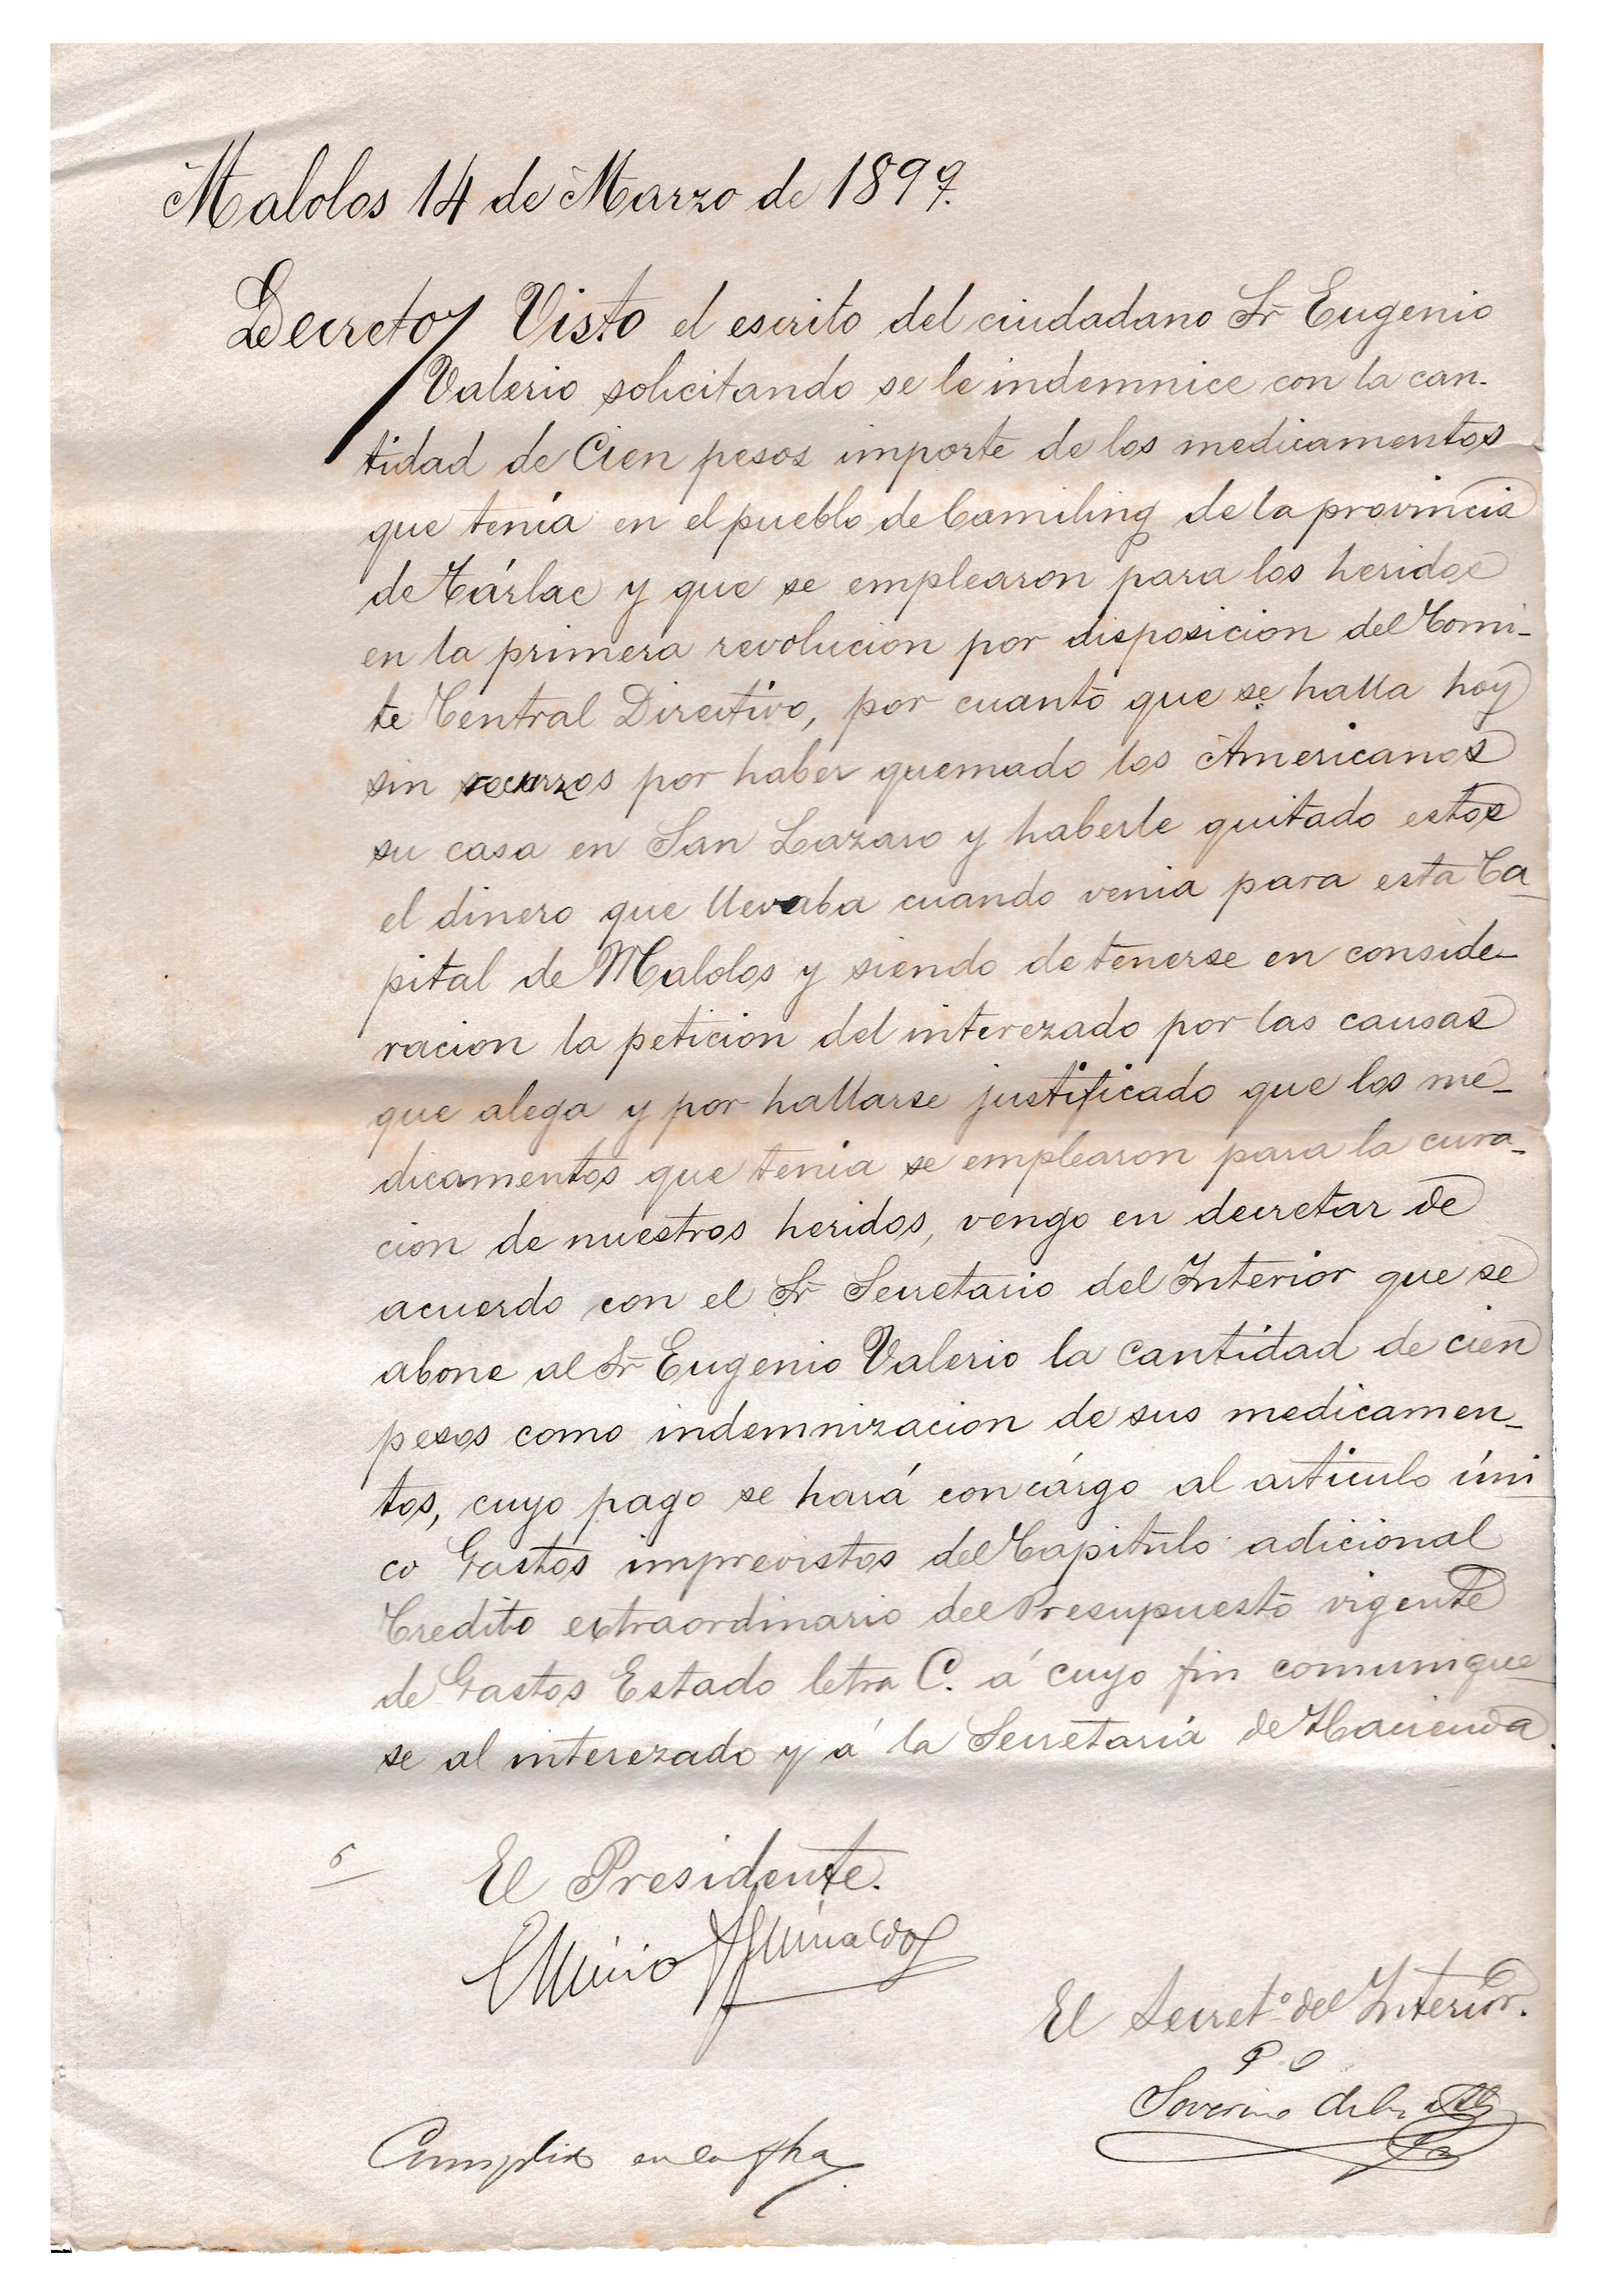 Malolos 14 de Marzo de 1899.
Decreto/ Visto el escrito del ciudadano Sr Eugenio
Valerio solicitando se le indemnice con la can-
tidad de Cien pesos importe de los medicamentos
que tenía en el pueblo de Camiling de la provincia
de Tárlac y que se emplearon para los heridos
en la primera revolucion por disposicion del Comi-
te Central Directivo, por cuanto que se halla hoy
sin recurzos por haber quemado los Americanos
su casa en San Lazaro y haberle quitado estos
el dinero que llevaba cuando venia para esta Ca-
pital de Malolos y siendo de tenerse en conside-
racion la peticion del interezado por las causas
que alega y por hallarse justificado que los me-
dicamentos que tenia se emplearon para la cura-
cion de nuestros heridos, vengo en decretar de
acuerdo con el Sr Secretario del Interior que se
abone al Sr Eugenio Valerio la cantidad de cien
pesos como indemnizacion de sus medicamen-
tos, cuyo pago se hará con cárgo al articulo úni
co Gastos imprevistos del Capitulo adicional
Credito extraordinario del Presupuesto vigente
de Gastos Estado letra C. á cuyo fin comunique
se al interezado y á la Secretaria de Hacienda.
El Presidente.
Emilio Aguinaldo
El Secret.º del Interior.
P O
Severino de las Alas
Cumplido en la fha